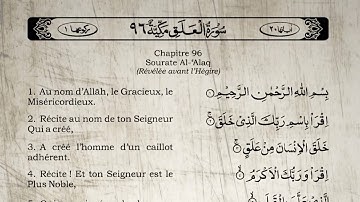 اٰیاتها ٢٠ سُوْرَةُ الْعَلَقِ مَکِّیَّةٌ ٩٦ رکوعها ١
Chapitre 96
Sourate Al-‘Alaq
(Révélée avant l’Hégire)
1. Au nom d’Allāh, le Gracieux, le
Miséricordieux.
بِسْمِ اللّٰهِ الرَّحْمٰنِ الرَّحِیْمِ
2. Récite au nom de ton Seigneur
Qui a créé,
اِقْرَاْ بِاسْمِ رَبِّكَ الَّذِیْ خَلَقَ
3. A créé l’homme d’un caillot
adhérent.
خَلَقَ الْاِنْسَانَ مِنْ عَلَقٍ
4. Récite ! Et ton Seigneur est le
Plus Noble,
اِقْرَاْ وَرَبُّكَ الْاَکْرَمُ